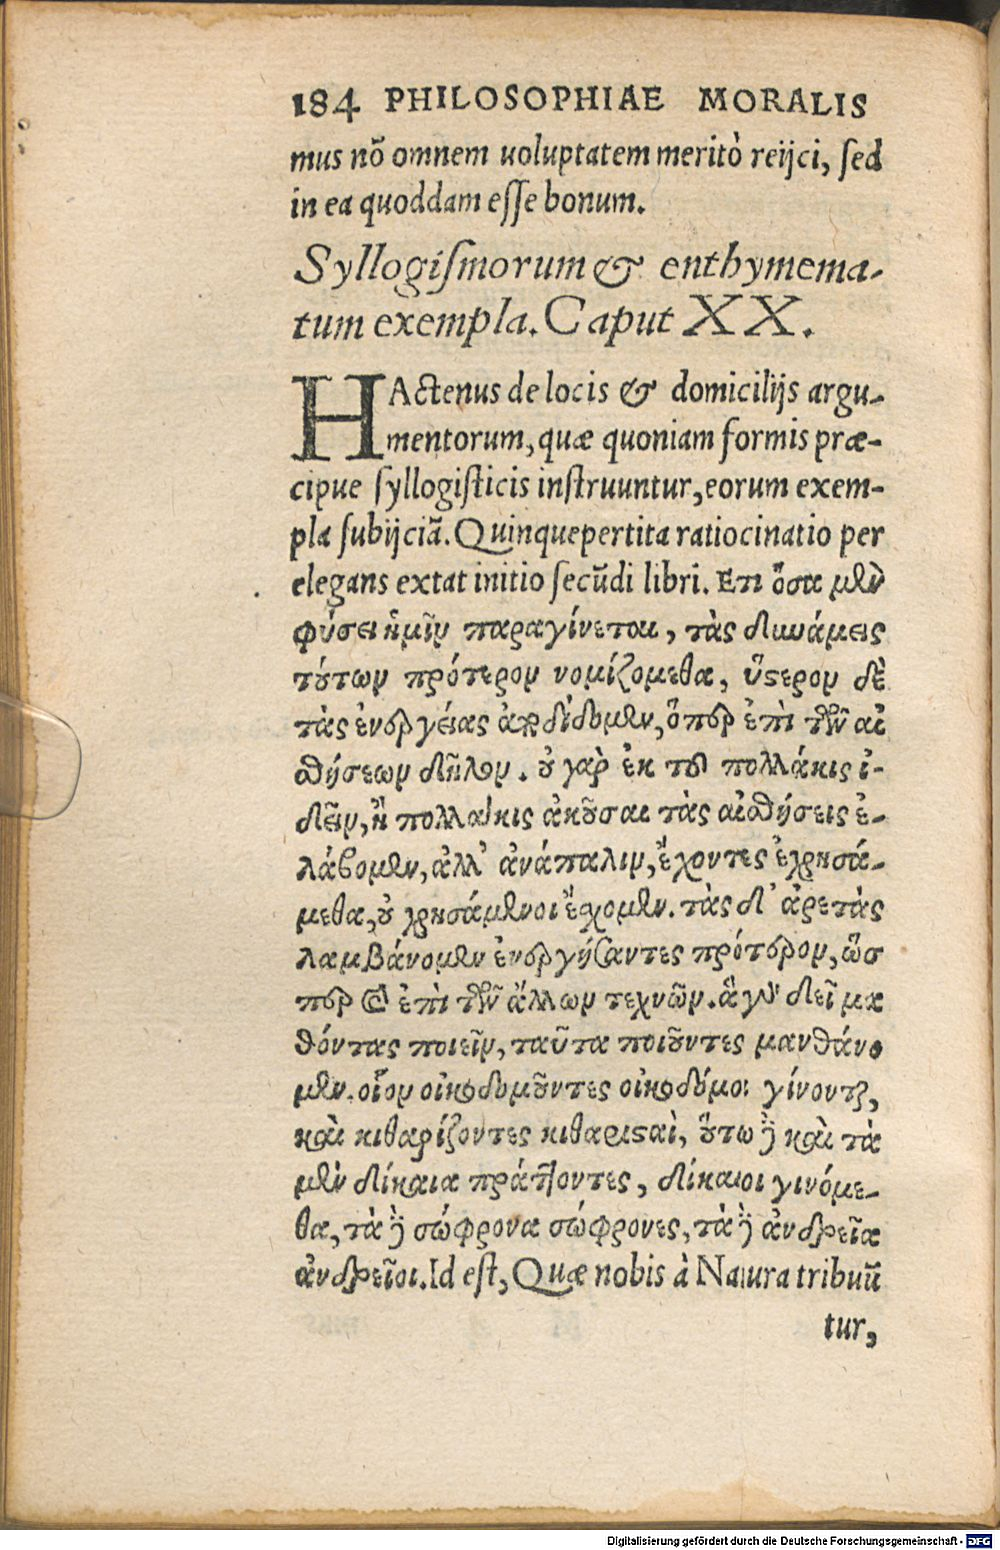 184 PHILOSOPHIAE MORALIS
mus nō omnem uoluptatem meritò reijci, ſed
in ea quoddam eſſe bonum.
Syllogiſmorum & enthymema-
tum exempla. Caput XX.
HActenus de locis & domicilijs argu-
mentorum, quæ quoniam formis præ-
cipue ſyllogiſticis inſtruuntur, eorum exem-
pla ſubijciā. Quinquepertita ratiocinatio per
elegans extat initio ſecūdi libri. Ετι ὅσα μὲν
φύσει ἡμῖν παραγίνεται, τὰς δυνάμεις
τούτων πρότερον νομιζόμεθα, ὕστερον δὲ
τὰς ἐνεργείας ἀποδίδομεν, ὅπερ ἐπὶ τῶν αἰ
σθήσεων δῆλον. οὐ γὰρ ἐκ τοῦ πολλάκις ἰ-
δεῖν, ἢ πολλάκις ἀκοῦσαι τὰς αἰσθήσεις ἐ-
λάβομεν, ἀλλ' ἀνάπαλιν, ἔχοντες ἐχρησά-
μεθα, οὐ χρησάμενοι ἔχομεν. τὰς δ' ἀρετὰς
λαμβάνομεν ἐνεργήσαντες πρότερον, ὥσ
περ καὶ ἐπὶ τῶν ἄλλων τεχνῶν. ἃ γὰρ δεῖ μα
θόντας ποιεῖν, ταῦτα ποιοῦντες μανθάνο
μεν. οἷον οἰκοδομοῦντες οἰκοδόμοι γίνονται,
καὶ κιθαρίζοντες κιθαρισταὶ, οὕτω δὲ καὶ τὰ
μὲν δίκαια πράττοντες, δίκαιοι γινόμε-
θα, τὰ δὲ σώφρονα σώφρονες, τὰ δὲ ἀνδρεῖα
ἀνδρεῖοι. Id eſt, Quæ nobis à Natura tribuū
tur,
Digitalisierung gefördert durch die Deutsche Forschungsgemeinschaft - DFG